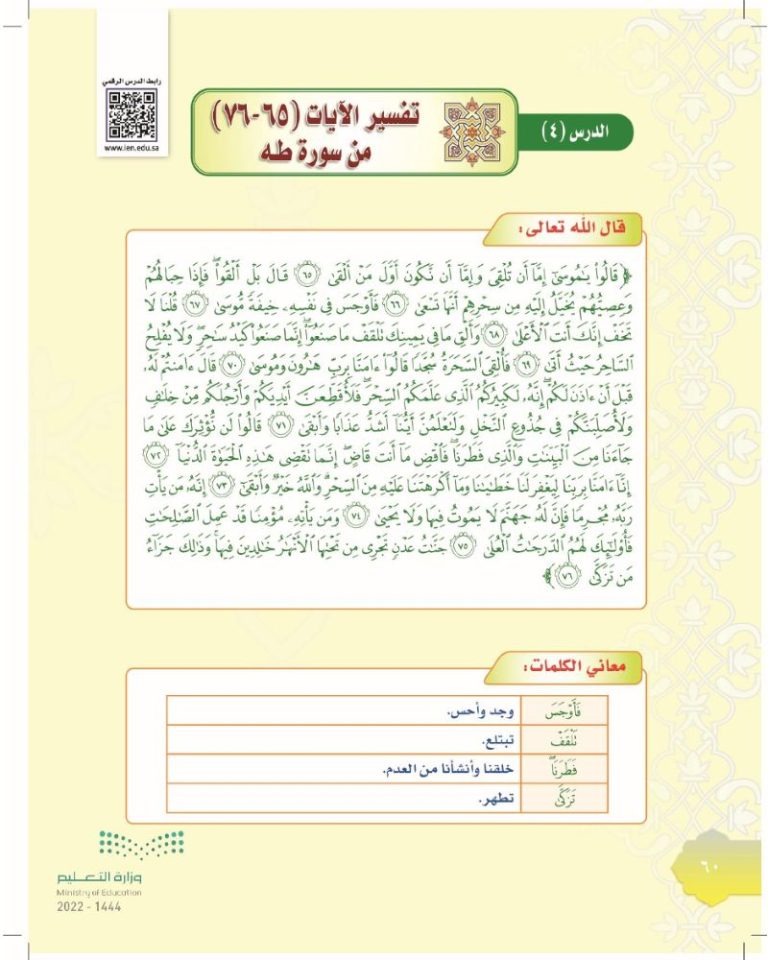 رابط الدرس الرقمي
www.ien.edu.sa
الدرس (٤)
تفسير الآيات (٦٥-٧٦)
من سورة طه
قال الله تعالى:
﴿ قَالُوا۟ يَٰمُوسَىٰٓ إِمَّآ أَن تُلْقِىَ وَإِمَّآ أَن نَّكُونَ أَوَّلَ مَنْ أَلْقَىٰ ٦٥ قَالَ بَلْ أَلْقُوا۟ ۖ فَإِذَا حِبَالُهُمْ
وَعِصِيُّهُمْ يُخَيَّلُ إِلَيْهِ مِن سِحْرِهِمْ أَنَّهَا تَسْعَىٰ ٦٦ فَأَوْجَسَ فِى نَفْسِهِۦ خِيفَةً مُّوسَىٰ ٦٧ قُلْنَا لَا
تَخَفْ إِنَّكَ أَنتَ ٱلْأَعْلَىٰ ٦٨ وَأَلْقِ مَا فِى يَمِينِكَ تَلْقَفْ مَا صَنَعُوٓا۟ ۖ إِنَّمَا صَنَعُوا۟ كَيْدُ سَٰحِرٍ ۖ وَلَا يُفْلِحُ
ٱلسَّاحِرُ حَيْثُ أَتَىٰ ٦٩ فَأُلْقِىَ ٱلسَّحَرَةُ سُجَّدًا قَالُوٓا۟ ءَامَنَّا بِرَبِّ هَٰرُونَ وَمُوسَىٰ ٧٠ قَالَ ءَامَنتُمْ لَهُۥ
قَبْلَ أَنْ ءَاذَنَ لَكُمْ ۖ إِنَّهُۥ لَكَبِيرُكُمُ ٱلَّذِى عَلَّمَكُمُ ٱلسِّحْرَ ۖ فَلَأُقَطِّعَنَّ أَيْدِيَكُمْ وَأَرْجُلَكُم مِّنْ خِلَٰفٍ
وَلَأُصَلِّبَنَّكُمْ فِى جُذُوعِ ٱلنَّخْلِ وَلَتَعْلَمُنَّ أَيُّنَآ أَشَدُّ عَذَابًا وَأَبْقَىٰ ٧١ قَالُوا۟ لَن نُّؤْثِرَكَ عَلَىٰ مَا
جَآءَنَا مِنَ ٱلْبَيِّنَٰتِ وَٱلَّذِى فَطَرَنَا ۖ فَٱقْضِ مَآ أَنتَ قَاضٍ ۖ إِنَّمَا تَقْضِى هَٰذِهِ ٱلْحَيَوٰةَ ٱلدُّنْيَآ ٧٢
إِنَّآ ءَامَنَّا بِرَبِّنَا لِيَغْفِرَ لَنَا خَطَٰيَٰنَا وَمَآ أَكْرَهْتَنَا عَلَيْهِ مِنَ ٱلسِّحْرِ ۗ وَٱللَّهُ خَيْرٌ وَأَبْقَىٰٓ ٧٣ إِنَّهُۥ مَن يَأْتِ
رَبَّهُۥ مُجْرِمًا فَإِنَّ لَهُۥ جَهَنَّمَ لَا يَمُوتُ فِيهَا وَلَا يَحْيَىٰ ٧٤ وَمَن يَأْتِهِۦ مُؤْمِنًا قَدْ عَمِلَ ٱلصَّٰلِحَٰتِ
فَأُو۟لَٰٓئِكَ لَهُمُ ٱلدَّرَجَٰتُ ٱلْعُلَىٰ ٧٥ جَنَّٰتُ عَدْنٍ تَجْرِى مِن تَحْتِهَا ٱلْأَنْهَٰرُ خَٰلِدِينَ فِيهَا ۚ وَذَٰلِكَ جَزَآءُ
مَن تَزَكَّىٰ ٧٦ ﴾
معاني الكلمات:
فَأَوْجَسَ وجد وأحس.
تَلْقَفْ تبتلع.
فَطَرَنَا ۖ خلقنا وأنشأنا من العدم.
تَزَكَّىٰ تطهر.
وزارة التعليم
Ministry of Education
2022 - 1444
٦٠